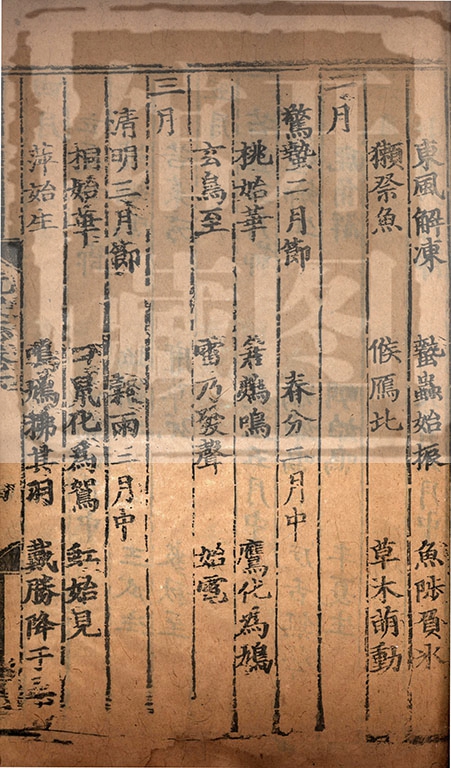 東風解凍 蟄蟲始振 魚陟負氷
獺祭魚 候鴈北 草木萌動
二月
驚蟄二月節 春分二月中
桃始華 倉鶊鳴 鷹化為鳩
玄鳥至 雷乃發聲 始電
三月
清明三月節 穀雨三月中
桐始華 田鼠化為鴽 虹始見
萍始生 鳴鳩拂其羽 戴勝降于